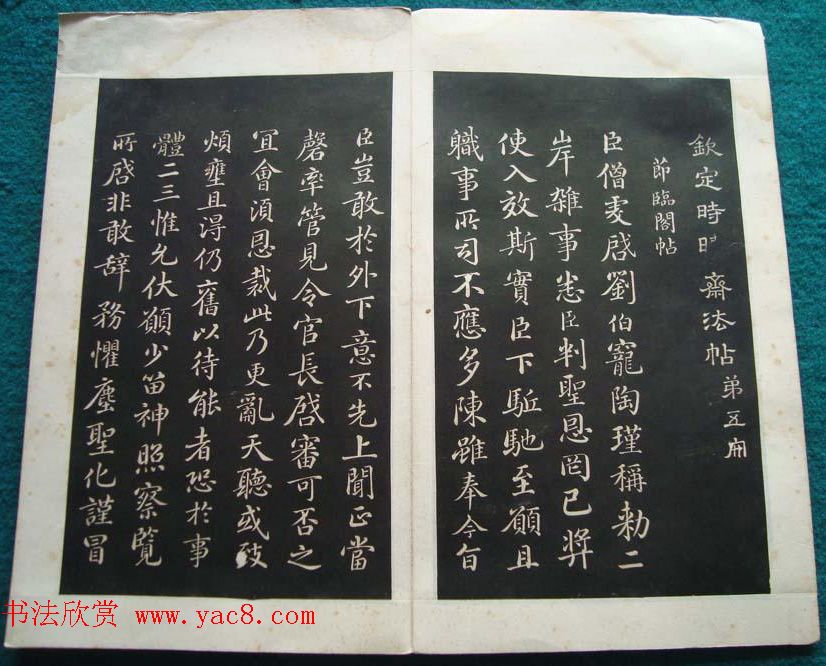 欽定時晴齋法帖第五冊
節臨閣帖
臣僧虔啓劉伯寵陶瑾稱勅二
岸雜事悉臣判聖恩罔已奬
使入效斯實臣下駈馳至願且
職事所司不應多陳雖奉今旨
臣豈敢於外下意不先上聞正當
罄率管見令官長啓審可否之
宜會須恩裁此乃更亂天聽或致
煩壅且得仍舊以待能者恐於事
體二三惟允伏願少留神照察覽
所啓非敢辭務懼塵聖化謹冒
书法欣赏 www.yac8.com